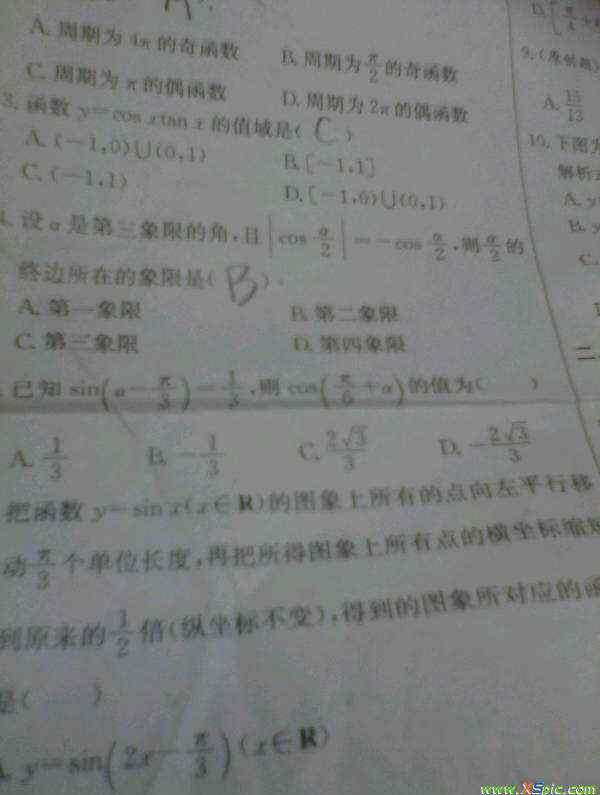 A. 周期为 4π 的奇函数
B. 周期为 π/2 的奇函数
C. 周期为 π 的偶函数
D. 周期为 2π 的偶函数
3. 函数 y=cos xtan x 的值域是( C )
A. (-1,0)∪(0,1)
B. [-1,1]
C. (-1,1)
D. [-1,0)∪(0,1)
设 α 是第三象限的角,且 |cos α/2| = -cos α/2 ,则 α/2 的
终边所在的象限是( B ).
A. 第一象限
B. 第二象限
C. 第三象限
D. 第四象限
已知 sin(α-π/3)=1/3 ,则 cos(π/6+α) 的值为( )
A. 1/3
B. -1/3
C. 2√3/3
D. -2√3/3
把函数 y=sin x(x∈R)的图象上所有的点向左平行移
动 π/3 个单位长度,再把所得图象上所有点的横坐标缩短
到原来的 1/2 倍(纵坐标不变),得到的图象所对应的函
是( )
y=sin(2x-π/3)(x∈R)
9. (原创题)
A. 15/13
10. 下图为
解析式
A. y
B. y
C.
二
www.XSpic.com